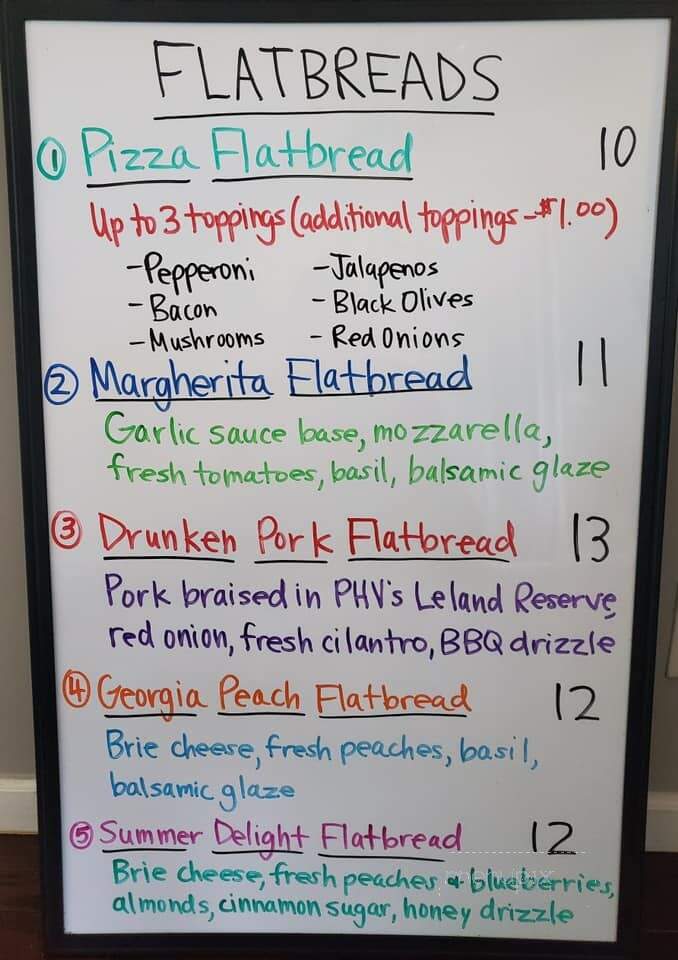 FLATBREADS
① Pizza Flatbread 10
Up to 3 toppings (additional toppings - $1.00)
- Pepperoni - Jalapenos
- Bacon - Black Olives
- Mushrooms - Red Onions
② Margherita Flatbread 11
Garlic sauce base, mozzarella,
fresh tomatoes, basil, balsamic glaze
③ Drunken Pork Flatbread 13
Pork braised in PHV's Leland Reserve,
red onion, fresh cilantro, BBQ drizzle
④ Georgia Peach Flatbread 12
Brie cheese, fresh peaches, basil,
balsamic glaze
⑤ Summer Delight Flatbread 12
Brie cheese, fresh peaches, & blueberries,
almonds, cinnamon sugar, honey drizzle